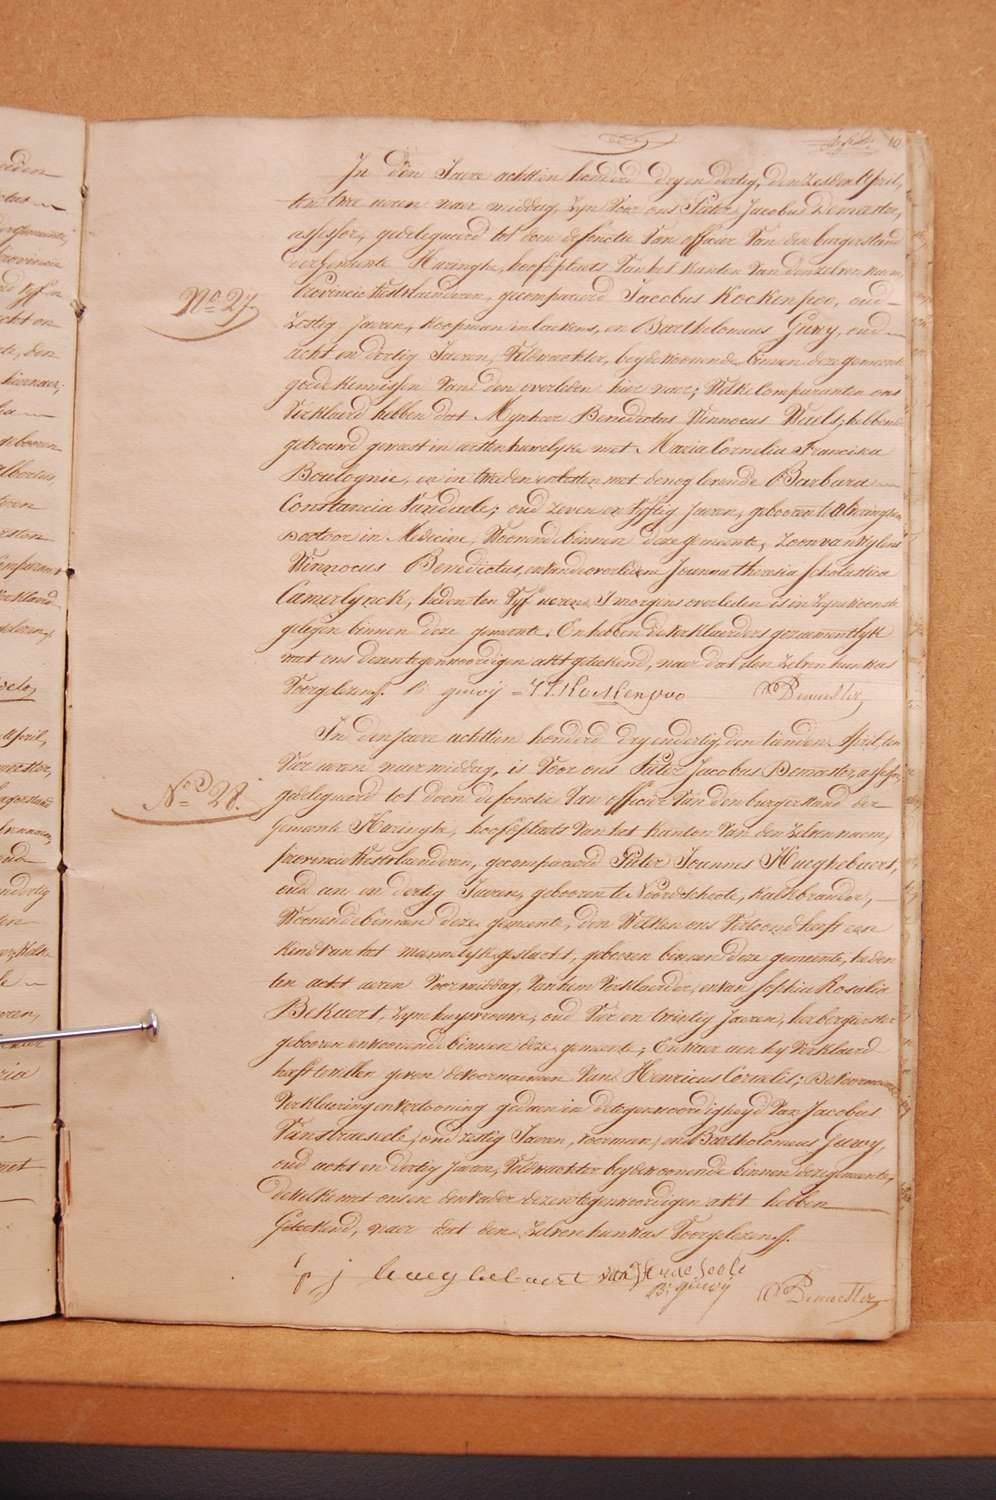 10
In den Jaere achttien honderd dry en dertig, den zesden April,
ten twee uren naer middag, zyn voor ons Pieter Jacobus Demeester,
assessor, gedelegueerd tot doen de fonctie van officier van den burgerstand
der gemeente Haringhe, hoofdplaets van het kanton van den zelven naem,
Provincie Westvlaenderen, gecompareerd Jacobus Kockenpoo, oud
No. 27.
zestig Jaeren, koopman in laekens, en Bartholomeus Guwy, oud
acht en dertig Jaeren, veldwachter, beyde woonende binnen deze gemeente
goede kennissen van den overleden hier naer; Welke Comparanten ons
Verklaerd hebben dat Mynheer Benedictus Winnocus Weuls, hebbende
getrouwd geweest in eersten huwelyke met Maria Cornelia Francisca
Boulognie, en in tweeden met de nog levende Barbara
Constancia Vandaele; oud zeven en vyftig jaeren, gebooren te
Doctoor in Medicine, woonende binnen deze gemeente, zoon van wylent
Winnocus Benedictus, en van de overledene Joanna Theresia Scholastica
Camerlynck, heden ten vyf ueren 's morgens overleden is in zyne wooninge
gelegen binnen deze gemeente. En hebben de verklaerders gezaementlyk
met ons dezen tegenwoordigen akt geteekend, naer dat den zelven hun was
Voorgelezen. B: guwij = Kockenpoo Demeester
In den Jaere achttien honderd dry en dertig, den tienden April, ten
vier uren naer middag, is voor ons Pieter Jacobus Demeester, assessor,
No. 28.
gedelegueerd tot doen de fonctie van officier van den burgerstand der
Gemeente Haringhe, hoofdplaets van het kanton van den zelven naem,
provincie Westvlaenderen, gecompareerd Pieter Joannes Huyghebaert,
oud een en dertig Jaeren, gebooren te Noordschoote, kalkbrander,
Woonende binnen deze gemeente, den welken ons vertoond heeft een
kind van het mannelyk geslacht, gebooren binnen deze gemeente, heden
ten acht uren voormiddag, van hem verklaerder, en van Sophia Rosalia
Bekaert, zyne huysvrouwe, oud vier en twintig Jaeren, herbergierster
gebooren en woonende binnen deze gemeente; En waer aen hy verklaerd
heeft te willen geven de voornaemen van Henricus Cornelis; De voornoemde
verklaering en vertooning gedaen in de tegenwoordigheyd van Jacobus
Vanstraeseele, oud zestig Jaeren, voerman, en Bartholomeus Guwy,
oud acht en dertig jaeren, veldwachter beyde woonende binnen deze gemeente,
de welke met ons en den vader dezen tegenwoordigen akt hebben
Geteekend, naer dat den zelven hun was voorgelezen.
p j huyghebaert
B: guwij Demeester